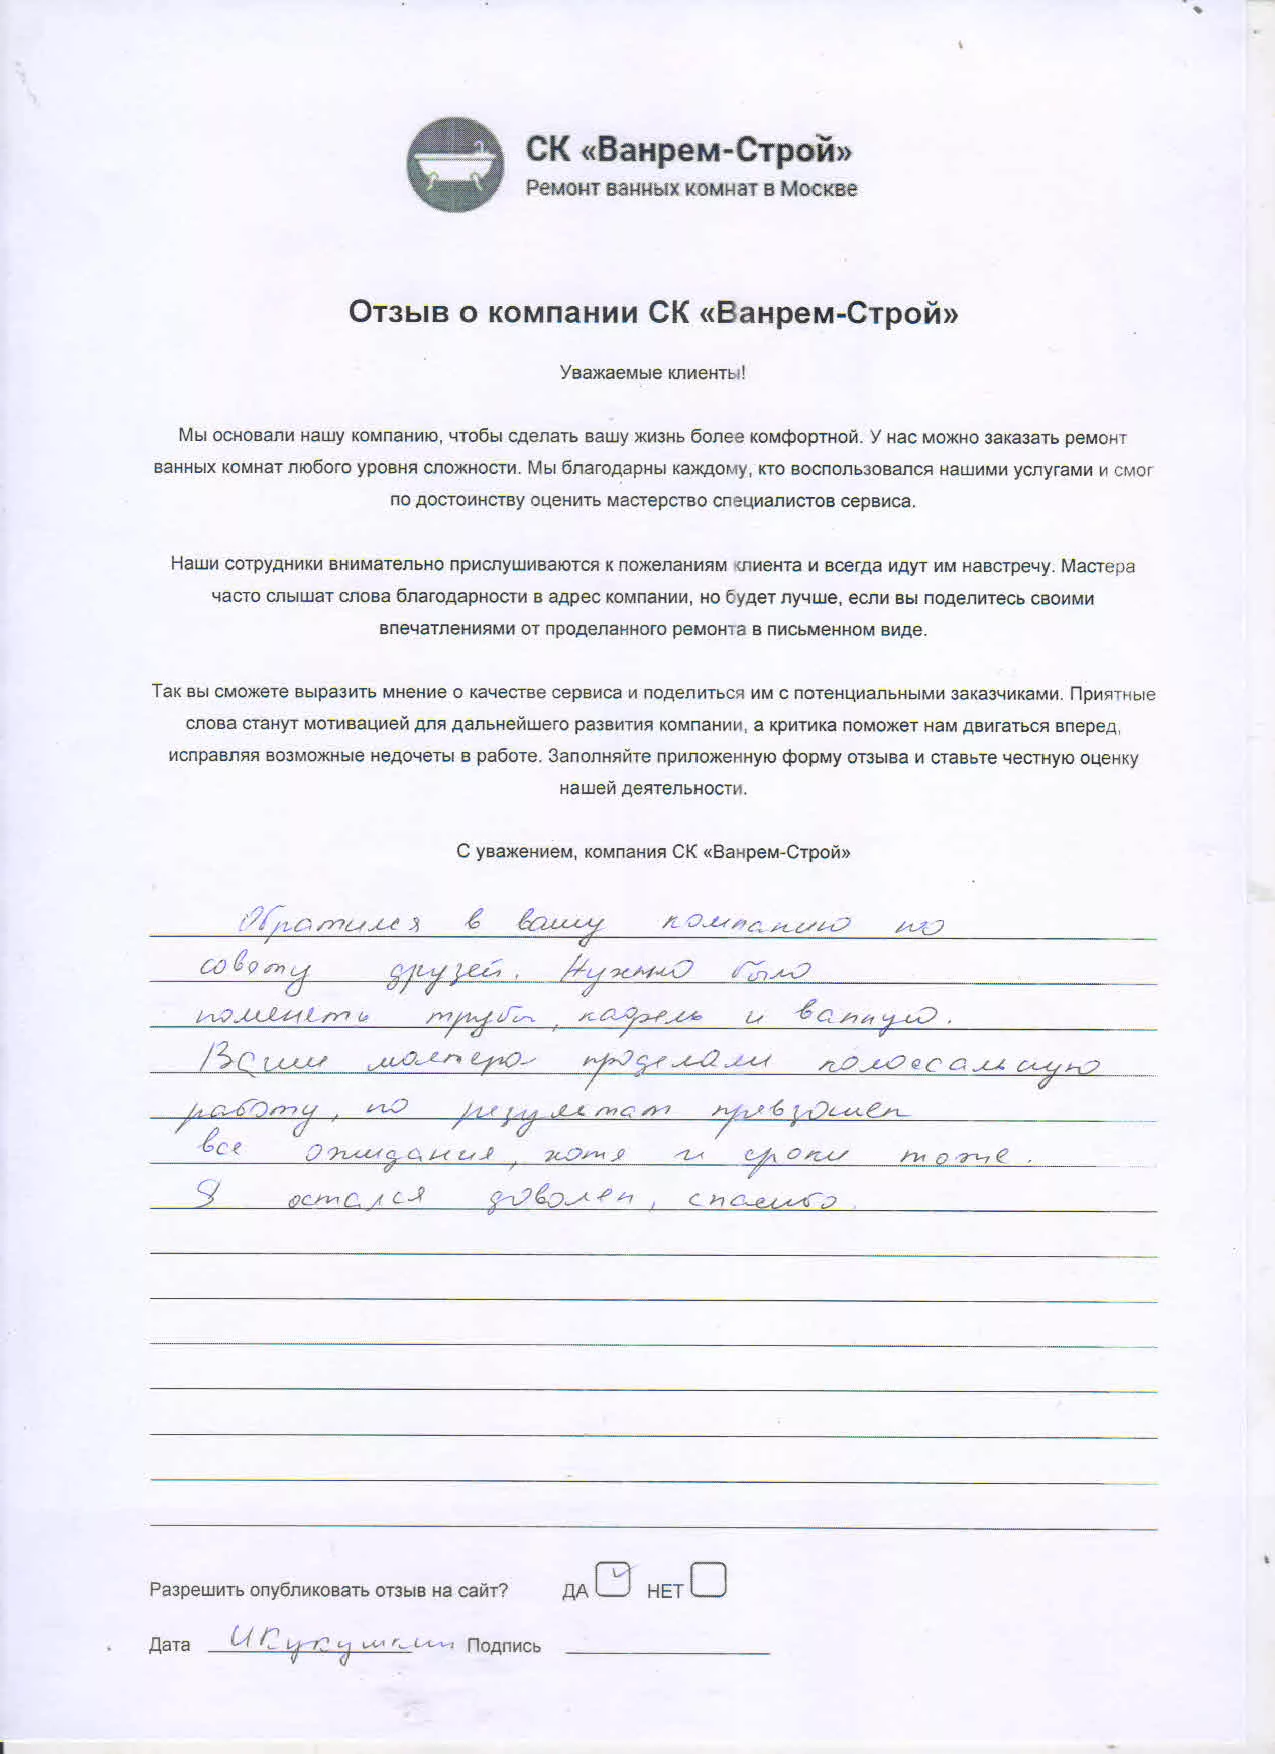 СК «Ванрем-Строй»
Ремонт ванных комнат в Москве
Отзыв о компании СК «Ванрем-Строй»
Уважаемые клиенты!
Мы основали нашу компанию, чтобы сделать вашу жизнь более комфортной. У нас можно заказать ремонт
ванных комнат любого уровня сложности. Мы благодарны каждому, кто воспользовался нашими услугами и смог
по достоинству оценить мастерство специалистов сервиса.
Наши сотрудники внимательно прислушиваются к пожеланиям клиента и всегда идут им навстречу. Мастера
часто слышат слова благодарности в адрес компании, но будет лучше, если вы поделитесь своими
впечатлениями от проделанного ремонта в письменном виде.
Так вы сможете выразить мнение о качестве сервиса и поделиться им с потенциальными заказчиками. Приятные
слова станут мотивацией для дальнейшего развития компании, а критика поможет нам двигаться вперед,
исправляя возможные недочеты в работе. Заполняйте приложенную форму отзыва и ставьте честную оценку
нашей деятельности.
С уважением, компания СК «Ванрем-Строй»
Обратился в вашу компанию по
совету друзей. Нужно было
поменять трубы, кафель и ванную.
Ваши мастера проделали колоссальную
работу, но результат превзошел
все ожидания, хотя и сроки тоже.
Я остался доволен, спасибо.
Разрешить опубликовать отзыв на сайт? ДА НЕТ
Дата ИКукушкин Подпись